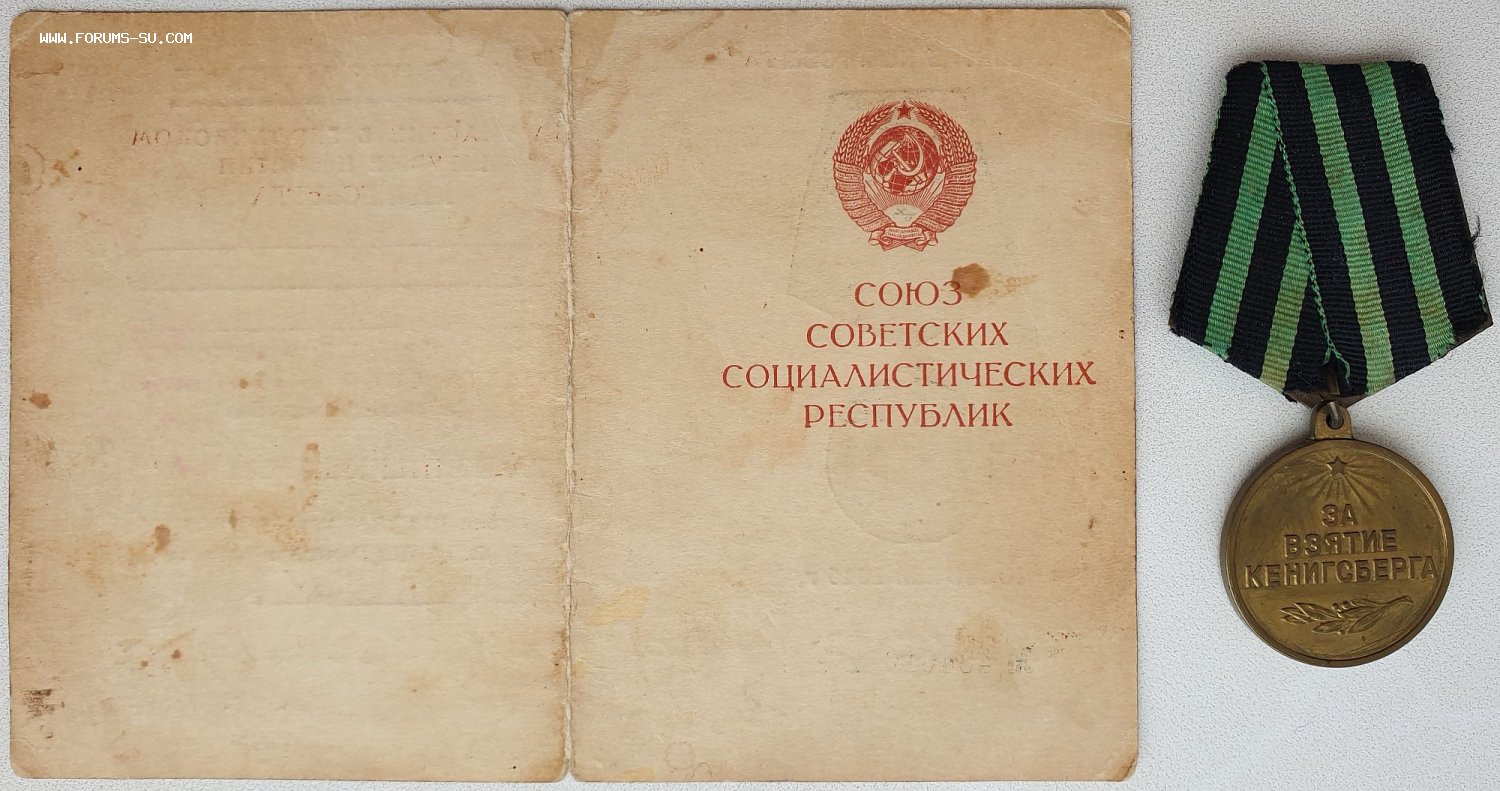 WWW.FORUMS-SU.COM
СОЮЗ
СОВЕТСКИХ
СОЦИАЛИСТИЧЕСКИХ
РЕСПУБЛИК
ЗА
ВЗЯТИЕ
КЕНИГСБЕРГА